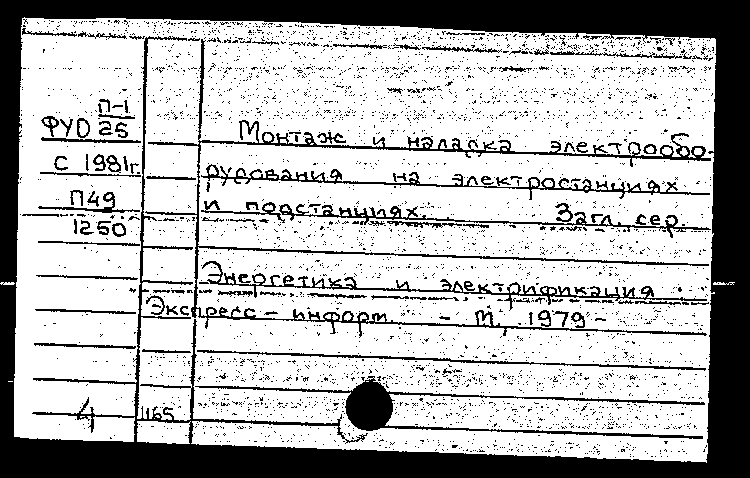 П-1
ФУО 25
С 1981г.
П49
1250
Монтаж и наладка электрообо-
рудования на электростанциях
и подстанциях. Загл. сер.
Энергетика и электрификация.
Экспресс - информ. - М., 1979 -
4 1165